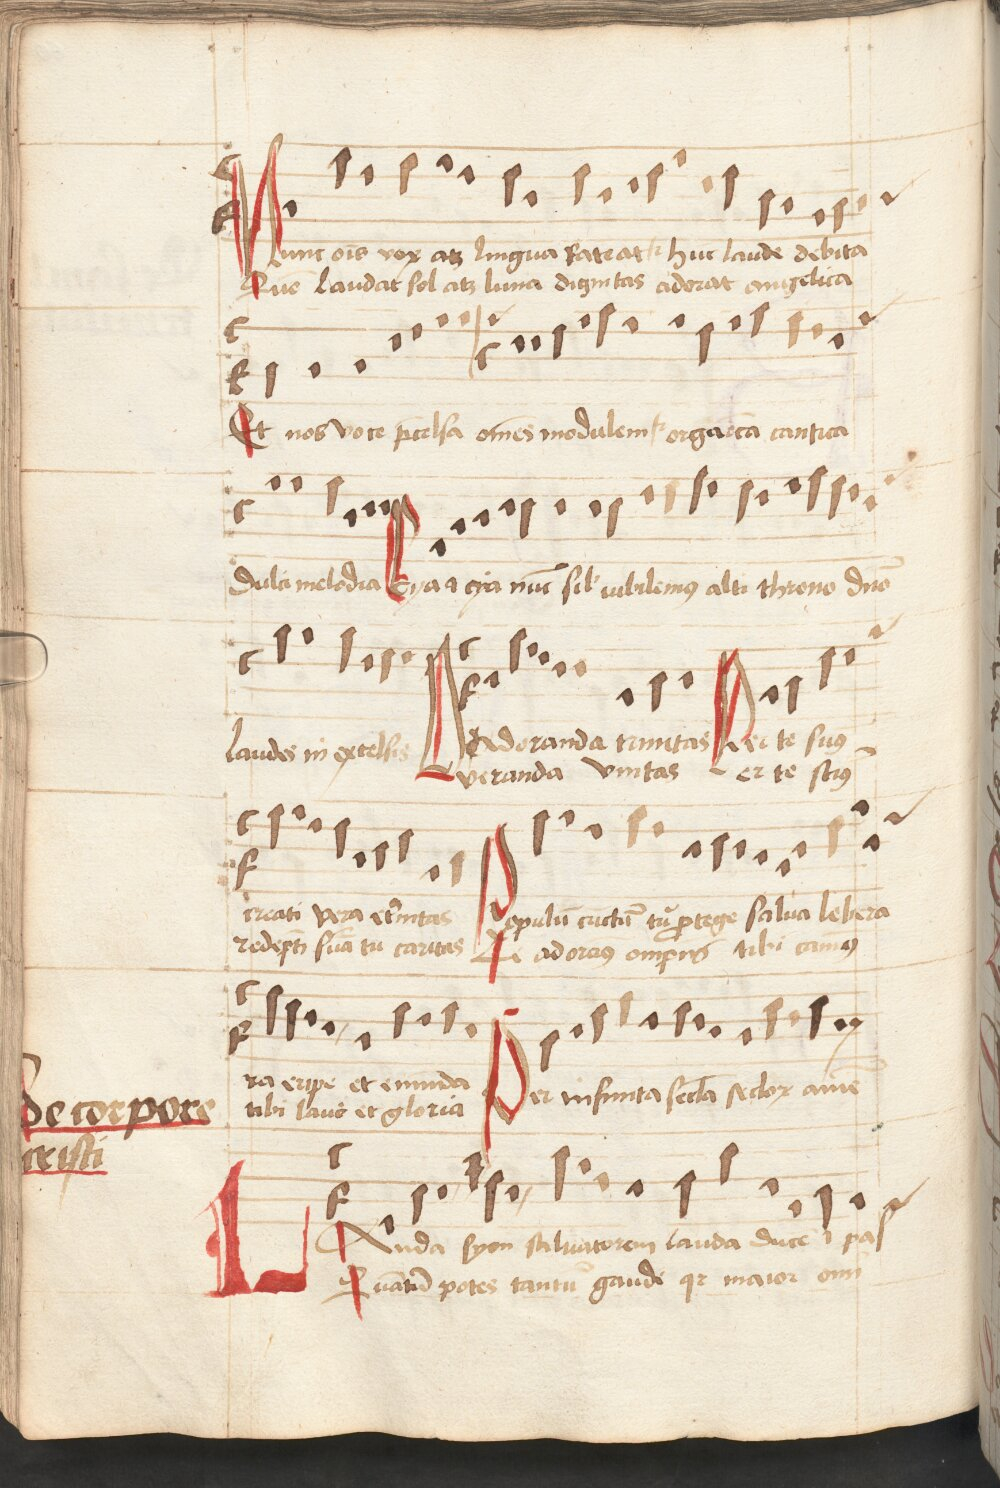 Nunc ois vox atq lingua fateat hunc laude debita
Que laudat sol atq luna dignitas adorat angelica
Et nos voce pcelsa omes modulem orgaica cantica
dulci melodia Eya a eya nuc sil iubilemus alti throno dno
laudes in excelsis O Adoranda trinitas Per te sus
O veranda vnitas Per te stus
creati vera etnitas Populu cuctu tu protege salua libera
redepti sua tu caritas Te adoras omps tibi canus
ra eripe et emunda Per infinita secla seclor ame
tibi laus et gloria
De corpore
cristi
Lauda syon saluatorem lauda duce i pas
Quatu potes tantu gaude qr maior omi